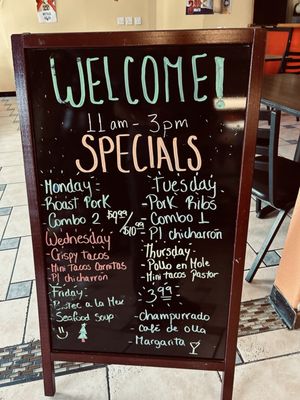 WELCOME!
11 am - 3 pm
SPECIALS
Monday -
Roast Pork
Combo 2 $9.99/$10.99
Wednesday
- Crispy Tacos
- Mini Tacos Carnitas
- P/ chicharron
Friday -
- Bistec a la Mex
- Seafood Soup
Tuesday -
- Pork Ribs
- Combo 1
- P/ chicharrón
Thursday -
- Pollo en Mole
- Mini Tacos Pastor
3.99 -
- Champurrado
- café de olla
- Margarita